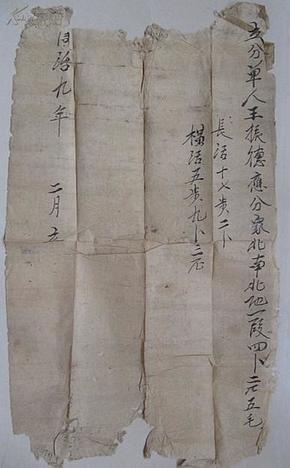 立分单人王振德應分家北南北地一段四卜二厘五毛
長活十七步二卜
橫活五步九卜三厘
同治九年 二月 立